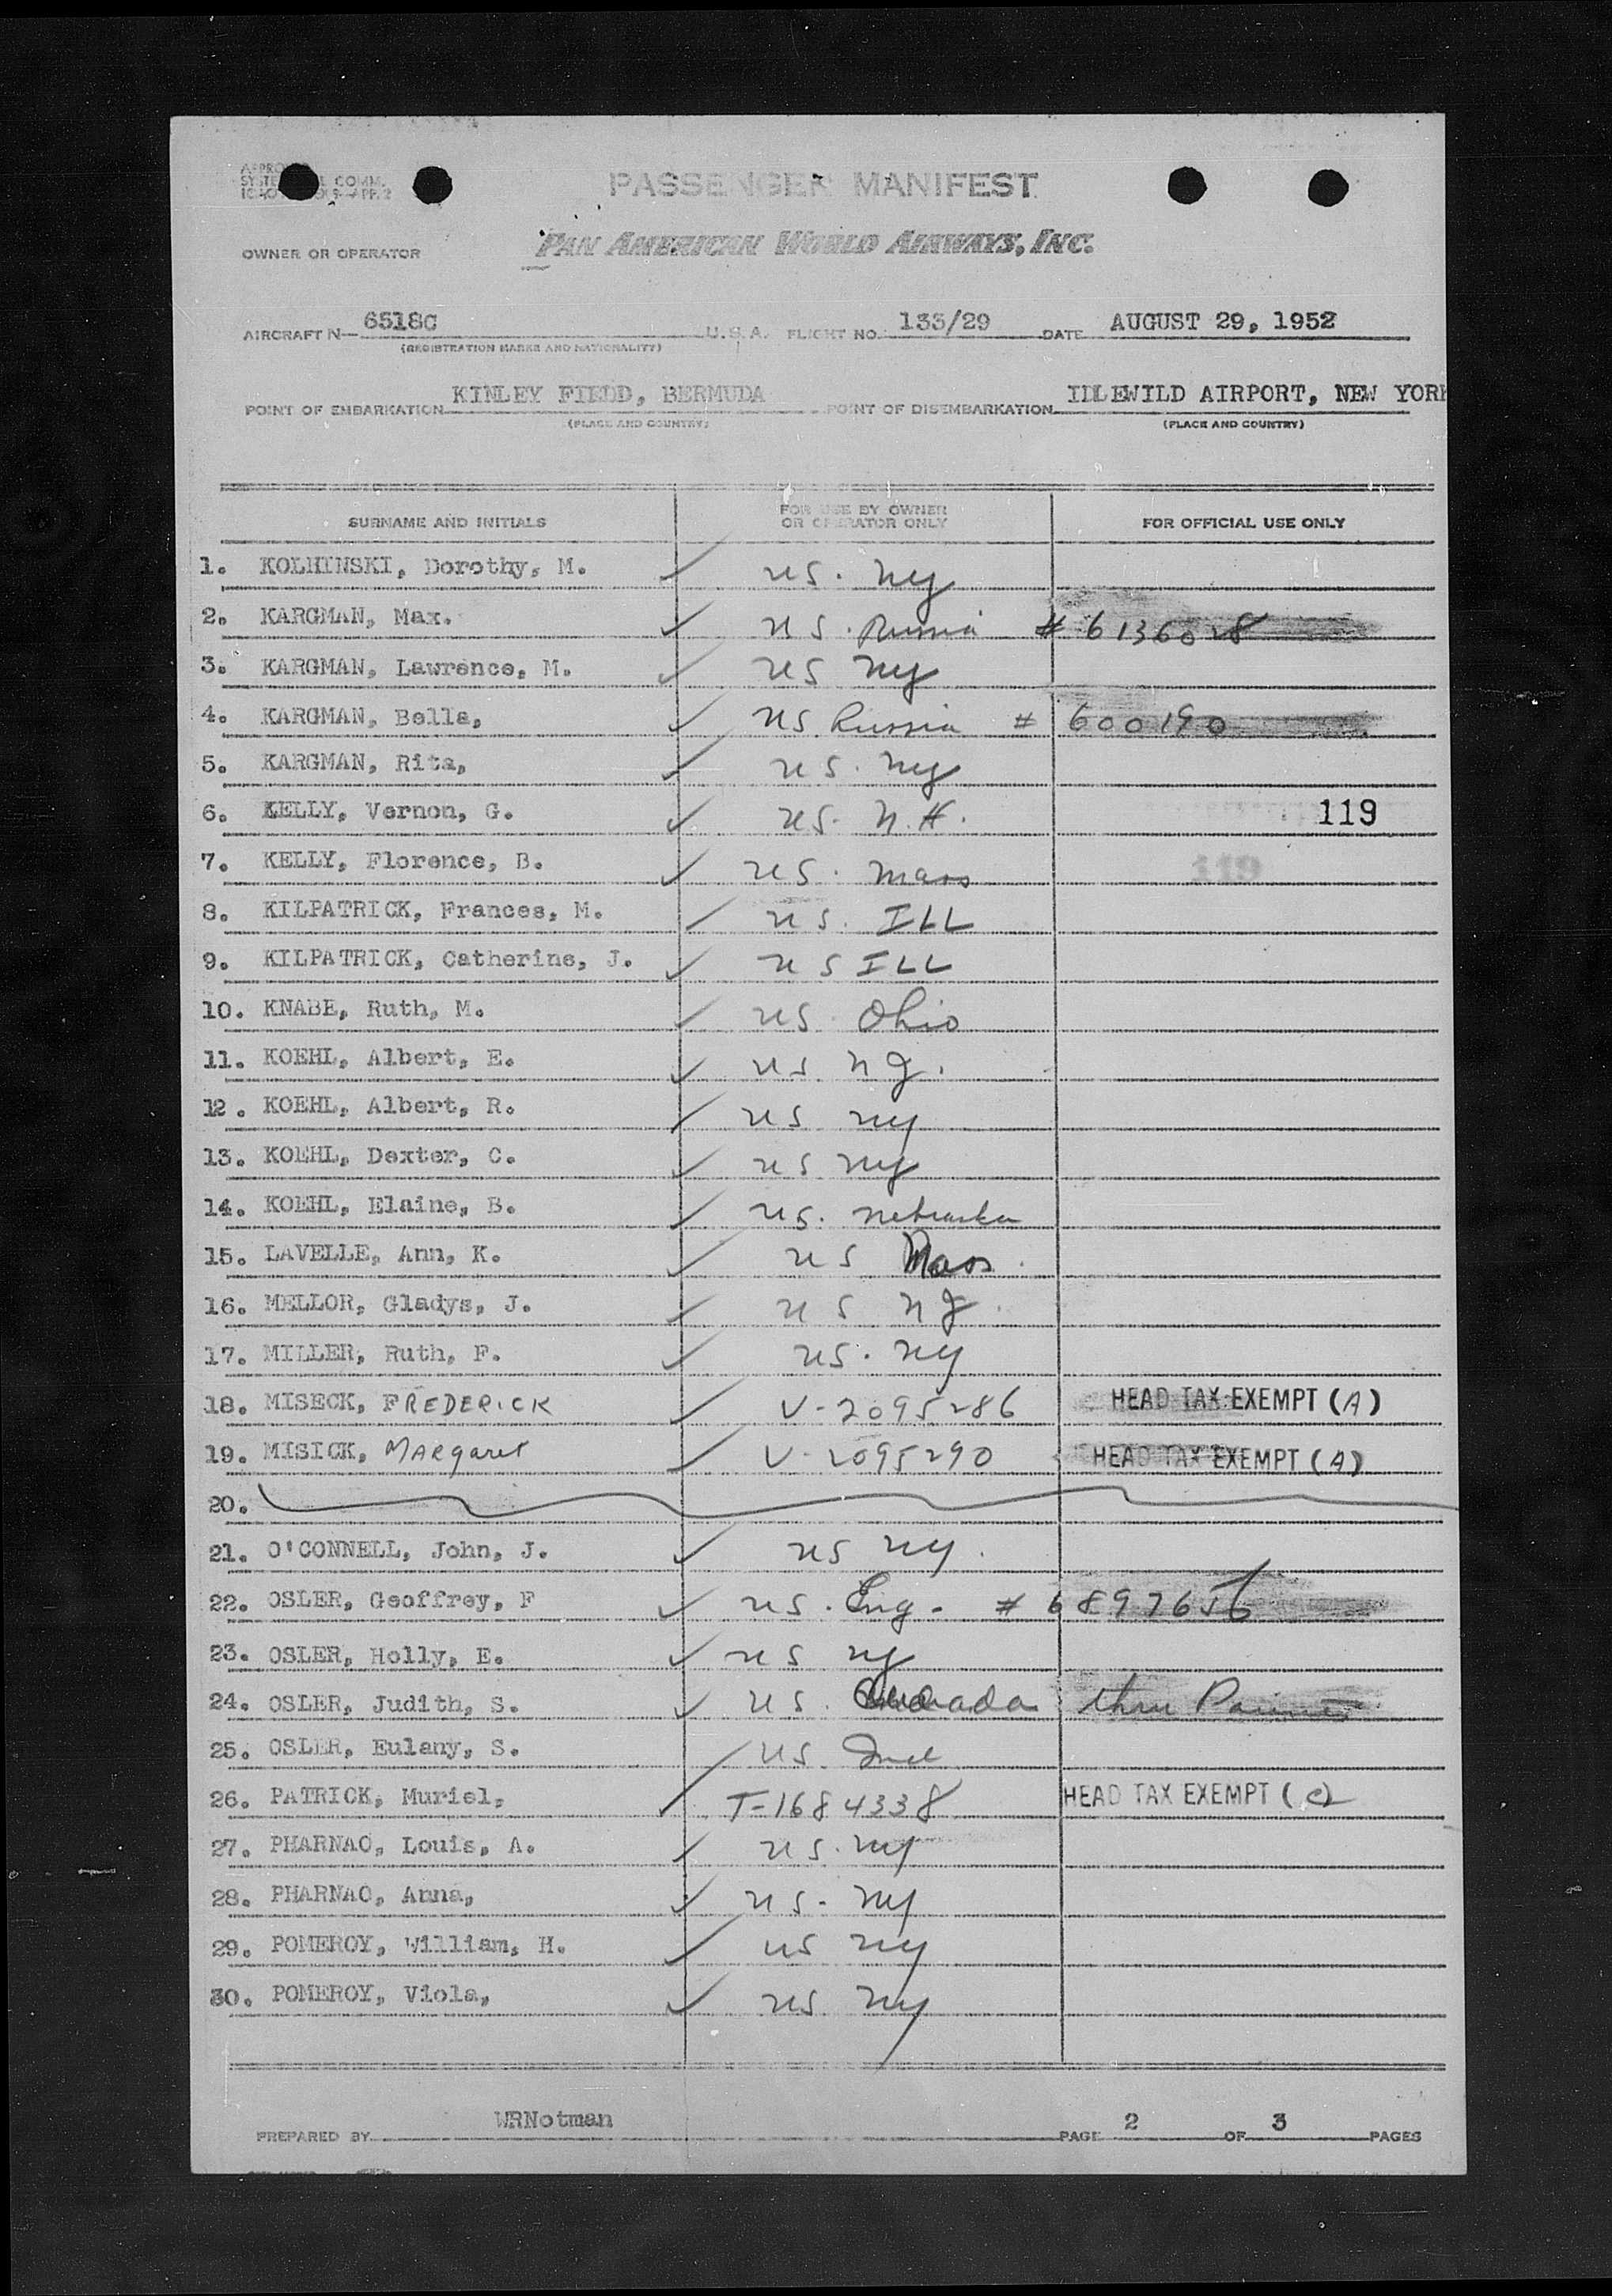 PASSENGER MANIFEST
OWNER OR OPERATOR PAN AMERICAN WORLD AIRWAYS, INC.
AIRCRAFT N— 6518C U.S.A. FLIGHT NO. 133/29 DATE AUGUST 29, 1952
(REGISTRATION MARKS AND NATIONALITY)
POINT OF EMBARKATION KINLEY FIEDD, BERMUDA POINT OF DISEMBARKATION IDLEWILD AIRPORT, NEW YORK
(PLACE AND COUNTRY) (PLACE AND COUNTRY)
SURNAME AND INITIALS FOR USE BY OWNER OR OPERATOR ONLY FOR OFFICIAL USE ONLY
1. KOLHINSKI, Dorothy, M. ✓ US. NY
2. KARGMAN, Max. ✓ US. Russia # 6136028
3. KARGMAN, Lawrence, M. ✓ US NY
4. KARGMAN, Bella, ✓ US Russia # 600190
5. KARGMAN, Rita, ✓ US. NY
6. KELLY, Vernon, G. ✓ US. N.H. 119
7. KELLY, Florence, B. ✓ US. Mass 119
8. KILPATRICK, Frances, M. ✓ US. ILL
9. KILPATRICK, Catherine, J. ✓ US ILL
10. KNABE, Ruth, M. ✓ US. Ohio
11. KOEHL, Albert, E. ✓ US NJ.
12. KOEHL, Albert, R. ✓ US NY
13. KOEHL, Dexter, C. ✓ US NY
14. KOEHL, Elaine, B. ✓ US. Nebraska
15. LAVELLE, Ann, K. ✓ US Mass.
16. MELLOR, Gladys, J. ✓ US NJ.
17. MILLER, Ruth, F. ✓ US. NY
18. MISECK, FREDERICK ✓ V-2095286 HEAD TAX EXEMPT (A)
19. MISICK, MARgaret ✓ V-2095290 HEAD TAX EXEMPT (A)
20.
21. O'CONNELL, John, J. ✓ US NY.
22. OSLER, Geoffrey, F ✓ US. Eng. # 6897656
23. OSLER, Holly, E. ✓ US NY
24. OSLER, Judith, S. ✓ US. Canada thru
25. OSLER, Eulany, S. ✓ US Ind
26. PATRICK, Muriel, ✓ T-1684338 HEAD TAX EXEMPT (C)
27. PHARNAO, Louis, A. ✓ US. NY
28. PHARNAO, Anna, ✓ US- NY
29. POMEROY, William, H. ✓ US NY
30. POMEROY, Viola, ✓ US NY
PREPARED BY WRNotman PAGE 2 OF 3 PAGES